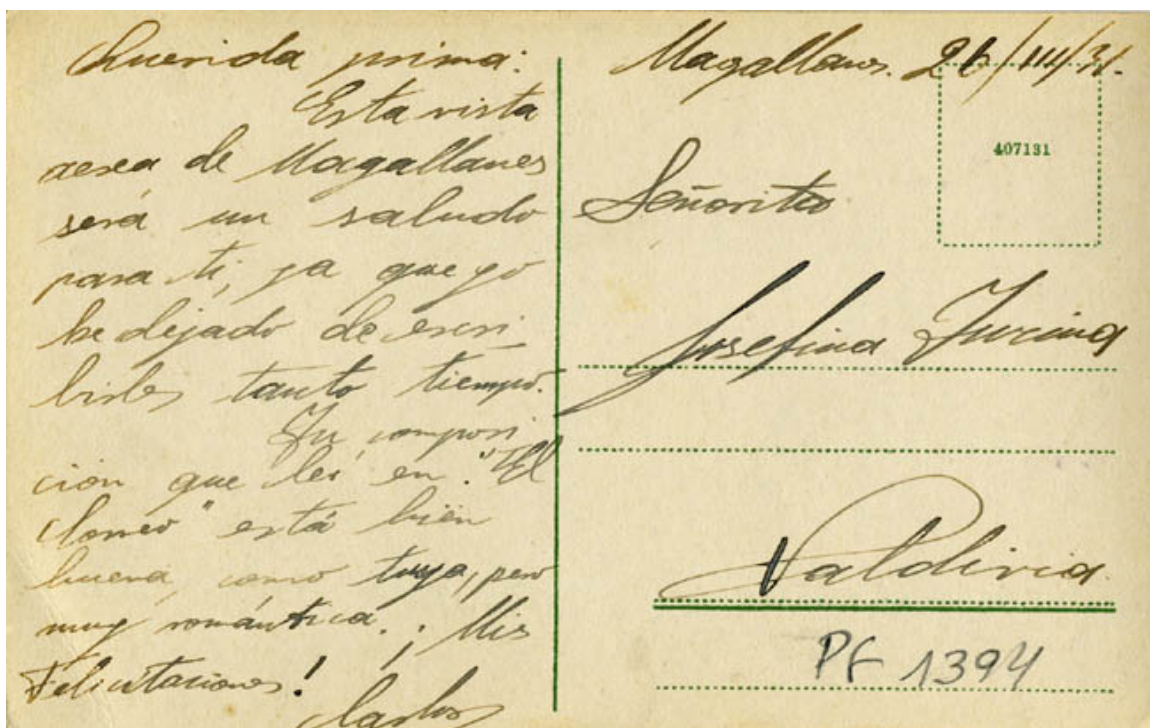 Querida prima:
Esta vista
aerea de Magallanes
será un saludo
para ti, ya que yo
he dejado de escri_
birles tanto tiempo.
Tu composi
ción que leí en "El
" está bien
buena, como tuya, pero
muy romántica. ¡Mis
Felicitaciones!
Carlos
Magallanes. 26/III/31.
407131
Señorita
Josefina Turina
Valdivia.
PF 1394